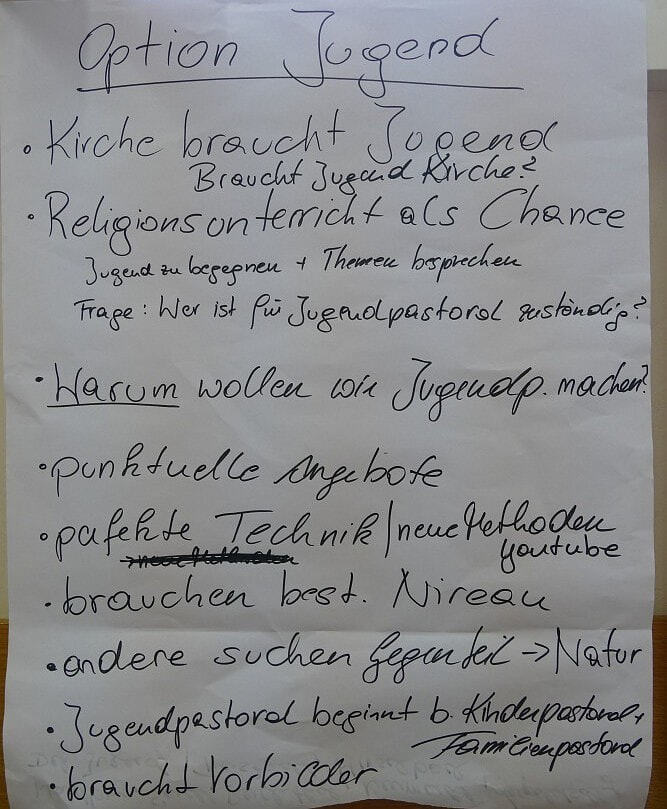 Option Jugend
• Kirche braucht Jugend
Braucht Jugend Kirche?
• Religionsunterricht als Chance
Jugend zu begegnen + Themen besprechen
Frage: Wer ist für Jugendpastoral zuständig?
• Warum wollen wir Jugendp. machen?
• punktuelle Angebote
• pafekte Technik/neue Methoden
youtube
• brauchen best. Niveau
• andere suchen Gegenteil -> Natur
• Jugendpastoral beginnt b. Kinderpastoral +
Familienpastoral
• braucht Vorbilder